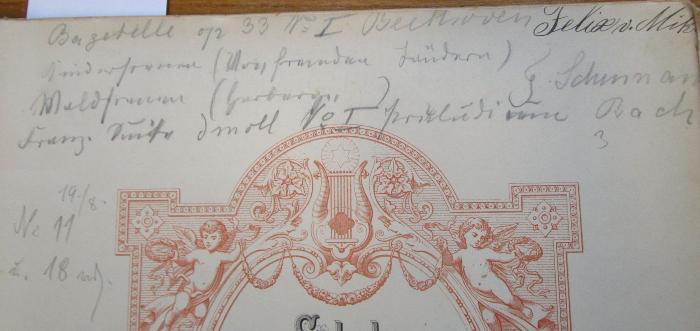 Bagatelle op 33 No I Beethoven
Felix v. Mik
Kinderscenen (Von fremden Ländern)
Waldscenen (Herberge) } Schuman
Franz. Suite dmoll No I Präludium Bach
3
19./8.
No 11
u. 18